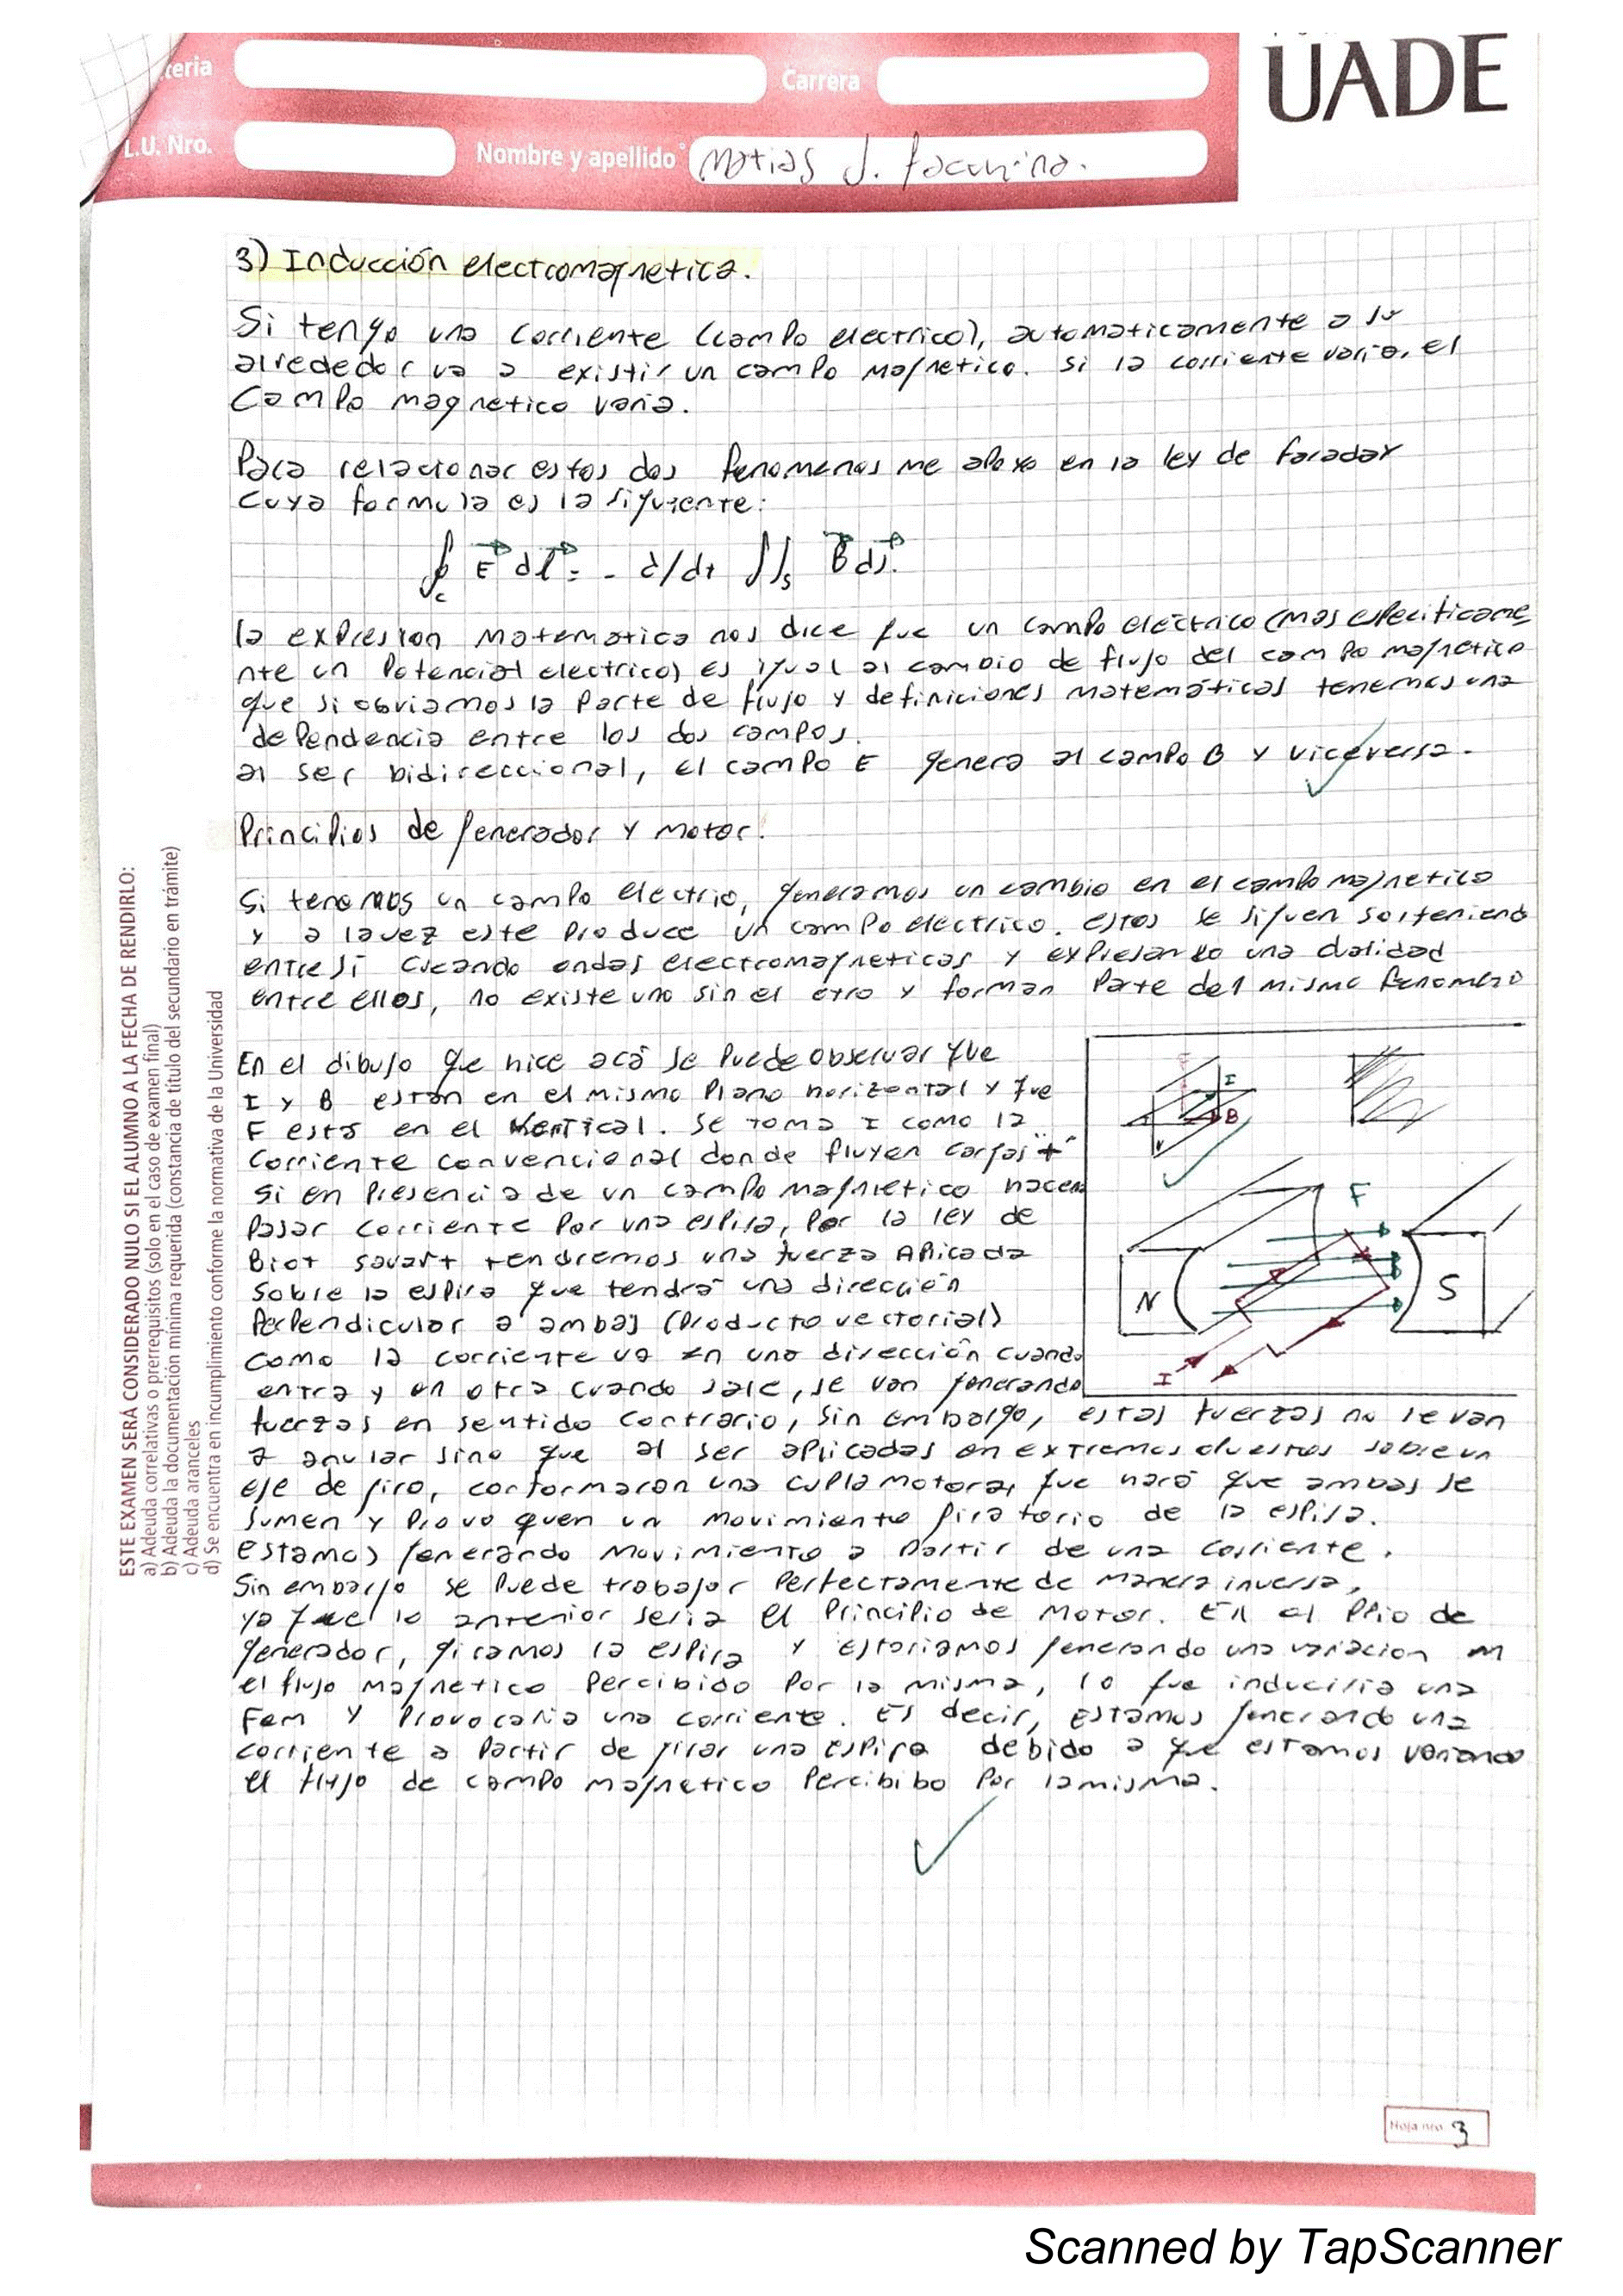 teria
Carrera
UADE
L.U. Nro.
Nombre y apellido
Matias J.
3) Inducción electromagnetica.
Si tengo una corriente (campo electrico), automaticamente a su
alrededor va a existir un campo magnetico. Si la corriente varia, el
Campo magnetico varia.
Para relacionar estos dos fenomenos me apoyo en la ley de faraday
Cuya formula es la siguiente:
∮c E dl = - d/dt ∬s B ds.
la expresion matematica nos dice que un campo eléctrico (mas especificame
nte un potencial electrico) es igual al cambio de flujo del campo magnetico
que si obviamos la parte de flujo y definiciones matemáticas tenemos una
dependencia entre los dos campos.
al ser bidireccional, el campo E genera al campo B y viceversa.
Principios de generador y motor.
Si tenemos un campo electrio, generamos un cambio en el campo magnetico
y a la vez este produce un campo electrico. estos se siguen sosteniendo
entre sí creando ondas electromagneticas y expresando una dualidad
entre ellos, no existe uno sin el otro y forman parte del mismo fenomeno
En el dibujo que hice acá se puede observar que
I y B están en el mismo plano horizontal y que
F está en el vertical. Se toma I como la
corriente convencional donde fluyen cargas "+"
Si en presencia de un campo magnetico hacen
pasar corriente por una espira, por la ley de
Biot savart tendremos una fuerza Aplicada
sobre la espira que tendrá una dirección
Perpendicular a ambas (producto vectorial)
como la corriente va en una dirección cuando
entra y en otra cuando sale, se van generando
fuerzas en sentido contrario, sin embargo, estas fuerzas no se van
a anular sino que al ser aplicadas en extremos opuestos sobre un
eje de giro, conformaron una cupla motora, que hará que ambas se
sumen y provoquen un movimiento giratorio de la espira.
estamos generando movimiento a partir de una corriente.
Sin embargo se puede trabajar perfectamente de manera inversa,
ya que lo anterior seria el Principio de Motor. En el Ppio de
generador, giramos la espira y estariamos generando una variacion en
el flujo magnetico percibido por la misma, lo que induciria una
Fem y provocaria una corriente. Es decir, estamos generando una
corriente a partir de girar una espira debido a que estamos variando
el flujo de campo magnetico percibibo por la misma.
I
B
F
N
B
S
I
ESTE EXAMEN SERÁ CONSIDERADO NULO SI EL ALUMNO A LA FECHA DE RENDIRLO:
a) Adeuda correlativas o prerrequisitos (solo en el caso de examen final)
b) Adeuda la documentación mínima requerida (constancia de título del secundario en trámite)
c) Adeuda aranceles
d) Se encuentra en incumplimiento conforme la normativa de la Universidad
Hoja nro. 3
Scanned by TapScanner